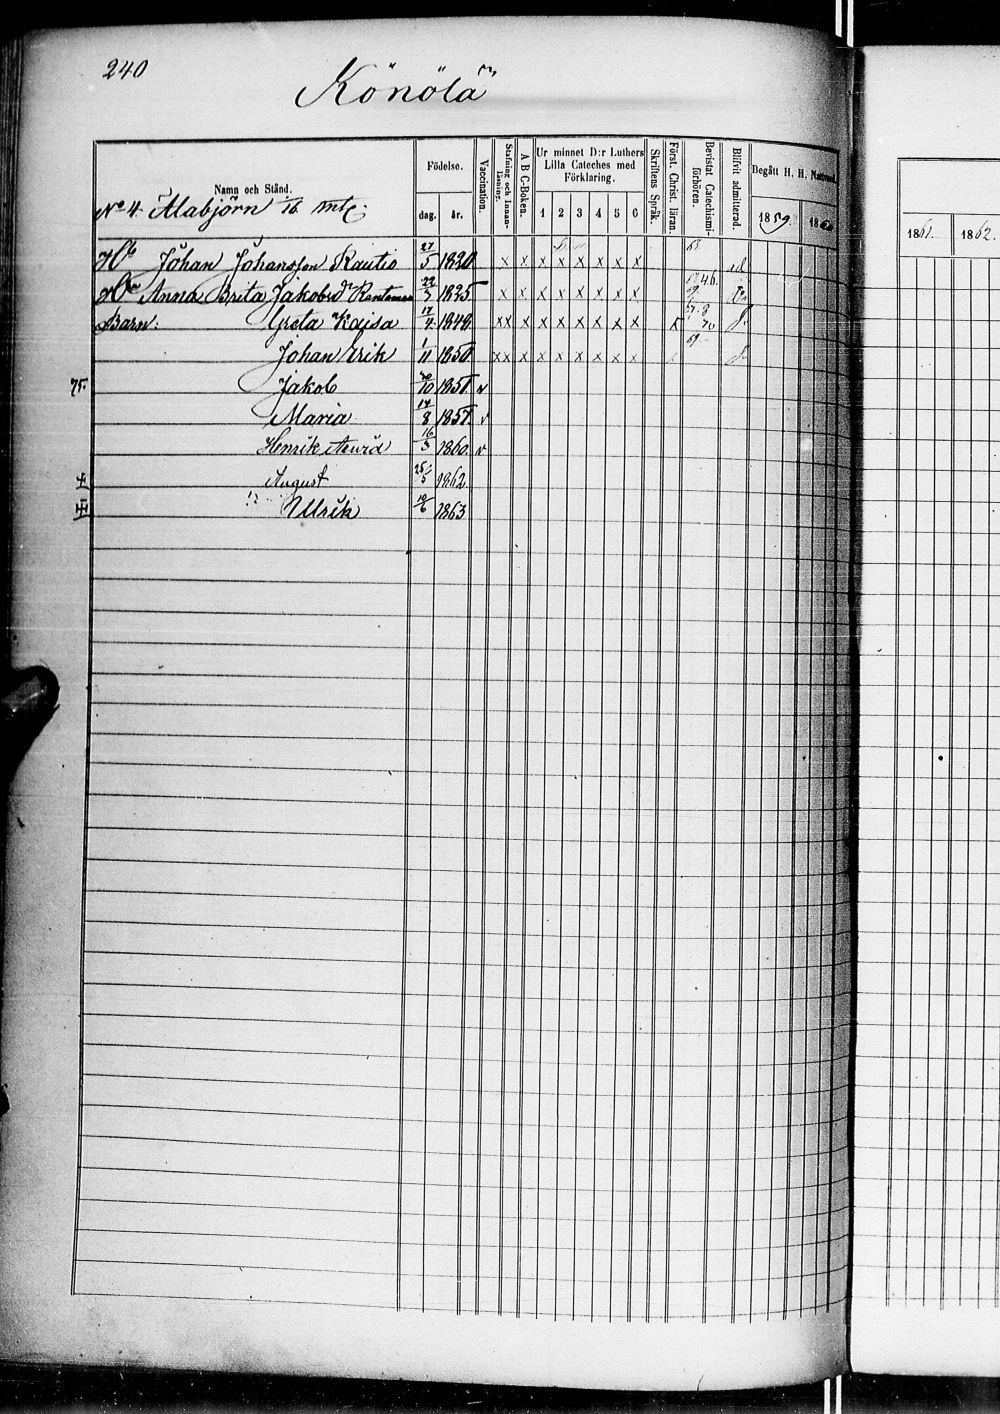 240
Könölä
Namn och Stånd.
Födelse.
dag. år.
Vaccination.
Stafning och Innanläsning.
A B C-Boken.
Ur minnet D:r Luthers Lilla Cateches med Förklaring.
1 2 3 4 5 6
Skriftens Språk.
Först. Christ. läran.
Bevistat Catechismiförhören.
Blifvit admitterad.
Begått H. H. Nattvard.
1859. 1860
1861. 1862.
No 4. Alabjörn 1/16 mtl:
Johan Johansson Rautio 27/5 1820 x x x x x x x x
Anna Brita Jakobsd 22/3 1825 x x x x x x x x
Barn: Greta Kaisa 17/4 1848 xx x x x x x x x
Johan Erik 1/11 1850 xx x x x x x x x
75. Jakob 1851 v
Maria 17/8 1857. v
Henrik Arvid 16/3 1860. v
August 25/5 1862
Ulrik 10/6 1863